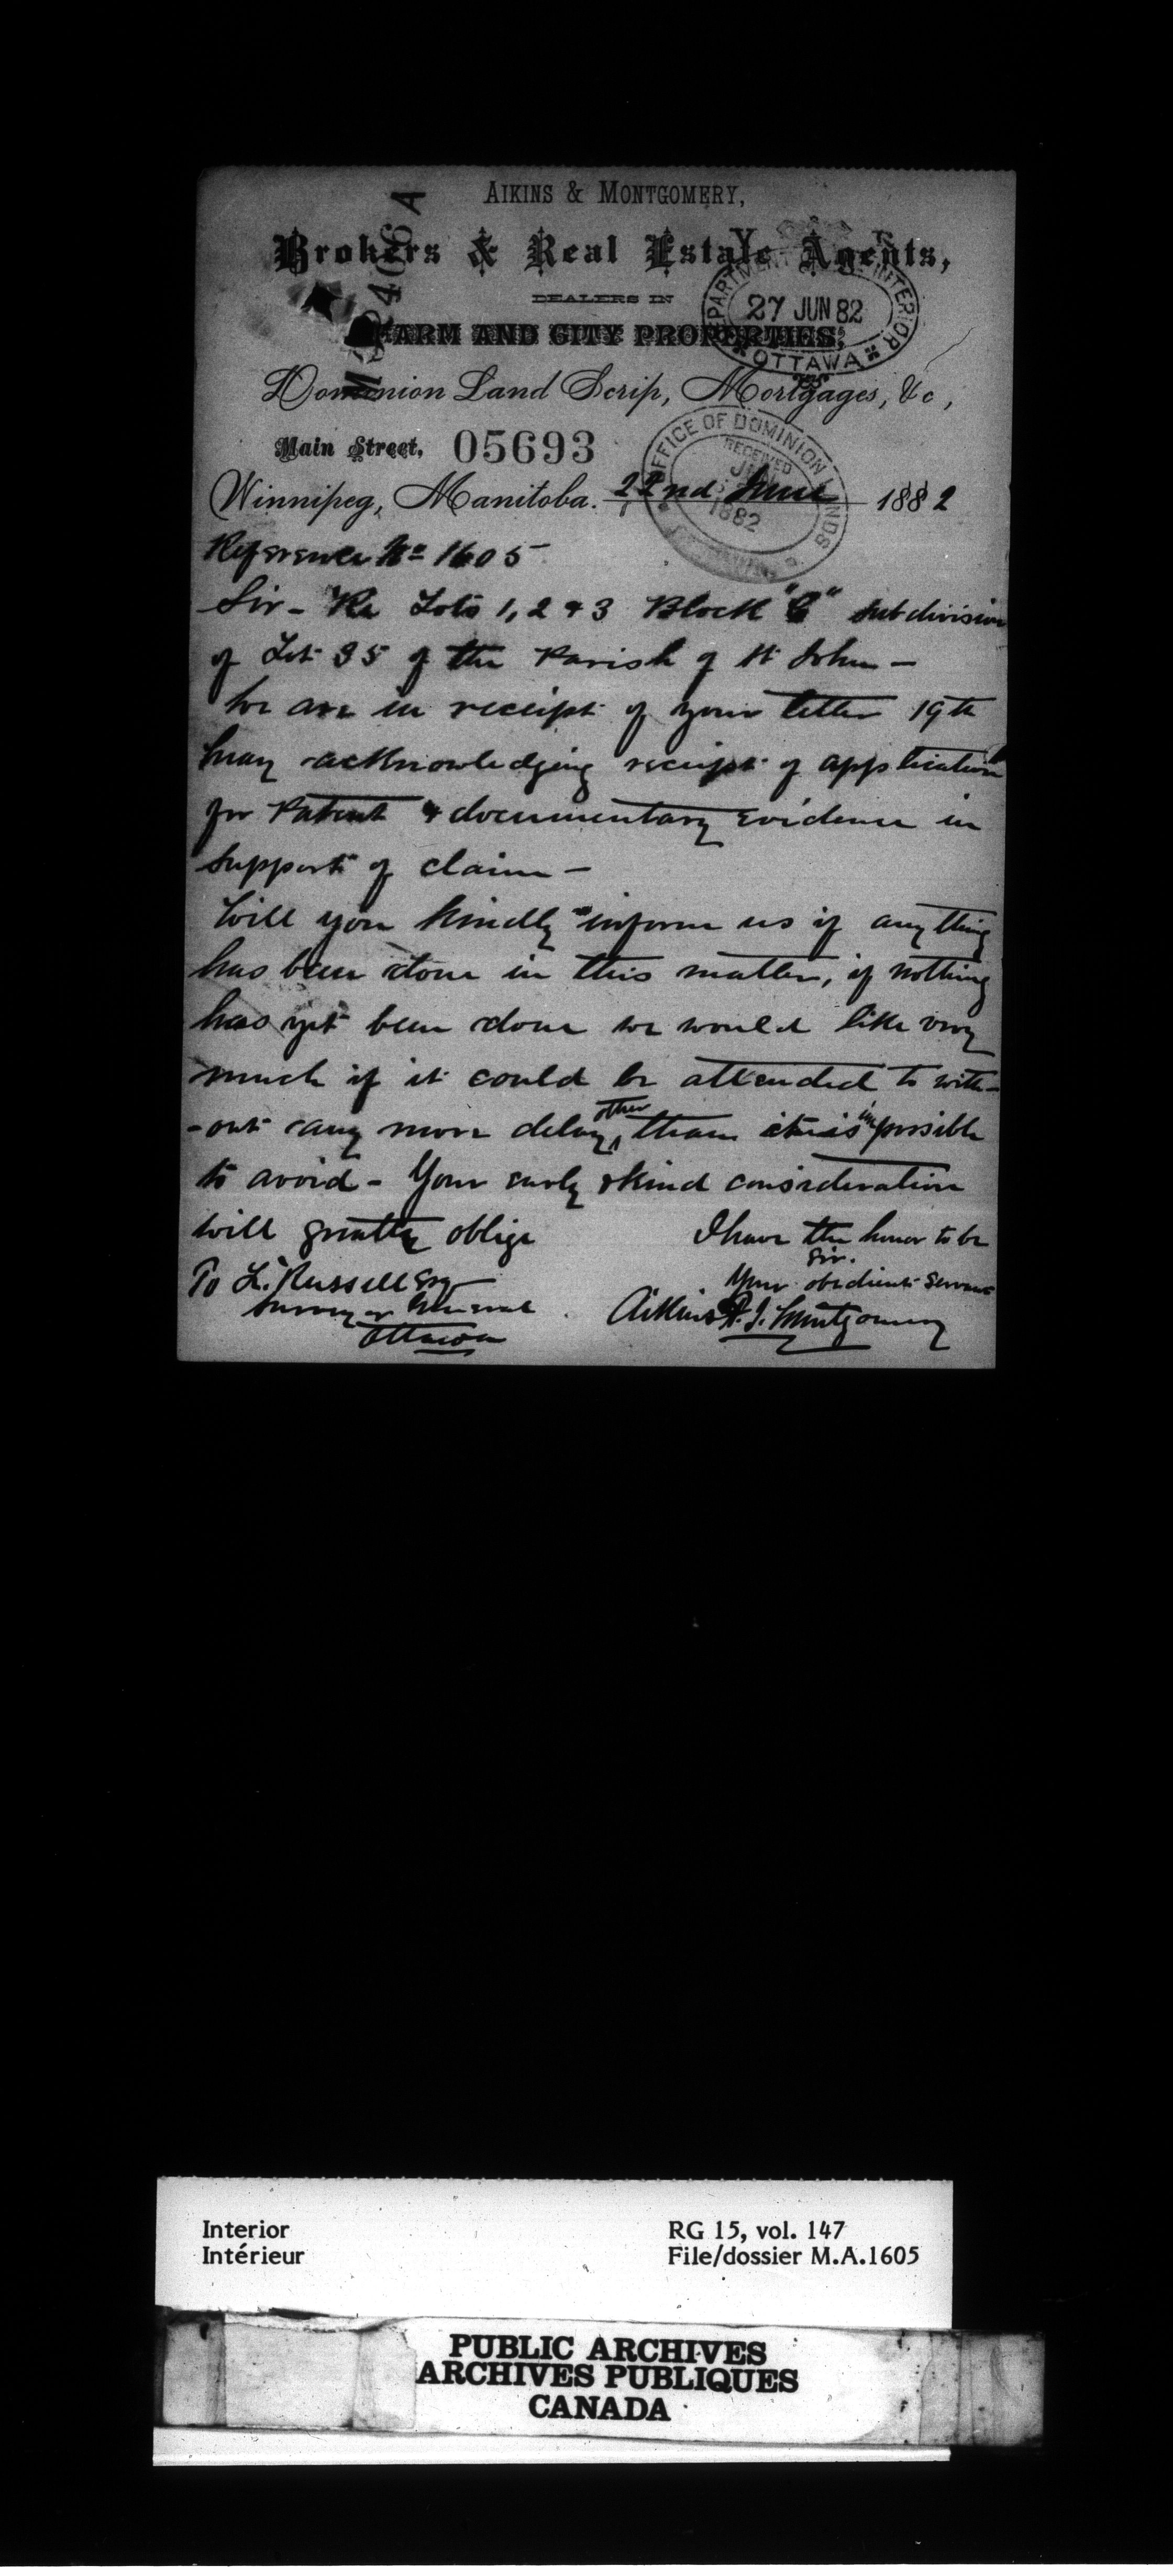 AIKINS & MONTGOMERY,
Brokers & Real Estate Agents,
DEALERS IN
FARM AND CITY PROPERTIES,
DEPARTMENT OF THE INTERIOR
27 JUN 82
OTTAWA
Dominion Land Scrip, Mortgages, &c,
Main Street, 05693
OFFICE OF DOMINION LANDS
RECEIVED
JUN
1882
Winnipeg, Manitoba. 22nd June 1882
Reference No 1605
Sir - Re Lots 1, 2 & 3 Block "C" subdivision
of Lot 35 of the Parish of St John -
We are in receipt of your letter 19th
May acknowledging receipt of application
for Patent & documentary evidence in
support of claim -
Will you kindly inform us if anything
has been done in this matter, if nothing
has yet been done we would like very
much if it could be attended to with-
-out any more delay other than it is impossible
to avoid - Your early & kind consideration
will greatly oblige
I have the honor to be
Sir.
Your obedient servant
To L. Russell Esq
Surveyor General
Ottawa
Aikins & Montgomery
Interior
Intérieur
RG 15, vol. 147
File/dossier M.A.1605
PUBLIC ARCHIVES
ARCHIVES PUBLIQUES
CANADA